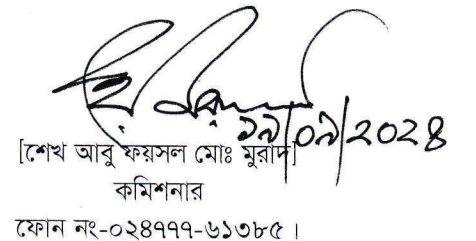 ১৯/০৯/২০২৪
[শেখ আবু ফয়সল মোঃ মুরাদ]
কমিশনার
ফোন নং-০২৪৭৭৭-৬১৩৮৫ ।